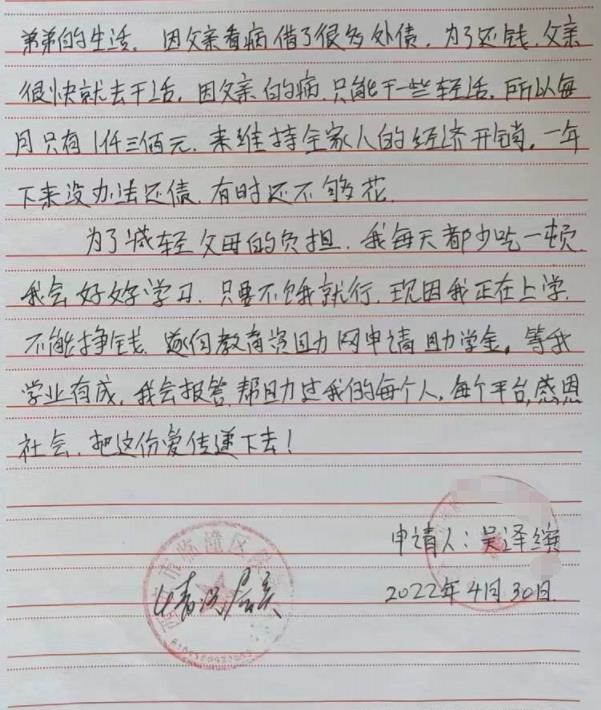 弟弟的生活。因父亲看病借了很多外债，为了还钱，父亲
很快就去干活，因父亲的病，只能干一些轻活，所以每
月只有1仟三佰元，来维持全家人的经济开销，一年
下来没办法还债，有时还不够花。
为了减轻父母的负担，我每天都少吃一顿
我会好好学习，只要不饿就行，现因我正在上学，
不能挣钱，遂向教育资助网申请助学金。等我
学业有成，我会报答，帮助过我的每个人，每个平台，感恩
社会，把这份爱传递下去！
申请人：吴泽缤
市临潼区
2022年4月30日